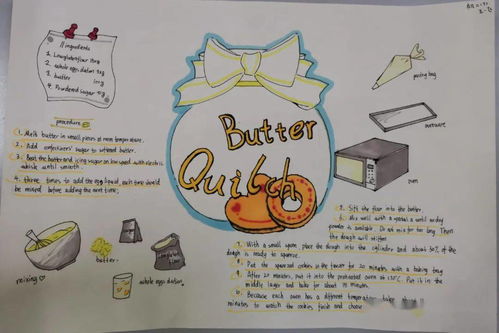 ingredients
1. Low gluten flour
2. whole eggs daton
3. butter
4. Powdered sugar
procedure
1. Melt butter in small pieces at room temperature.
2. Add confectioners' sugar to softened butter.
3. Beat the butter and icing sugar on low speed with electric
whisk until smooth.
4. three times to add the egg liquid, each time should
be mixed before adding the next time;
mixing
butter
whole eggs daton
Butter
Quibch
piping bag
oven
5. Sift the flour into the butter.
6. Mix well with a spatula until no dry
powder is available. Do not mix for too long. Then
the dough will stiffen
7. With a small spoon place the dough into the cylinder and about 50% of the
dough is ready to squeeze.
8. Put the squeezed cookies in the freezer for 20 minutes with a baking tray
9. After 20 minutes, put it into the preheated oven at 170°C. Put it in the
middle layer and bake for about 15 minutes.
Because each oven has a different temperature, take about
minutes to watch the cookies finish and choose